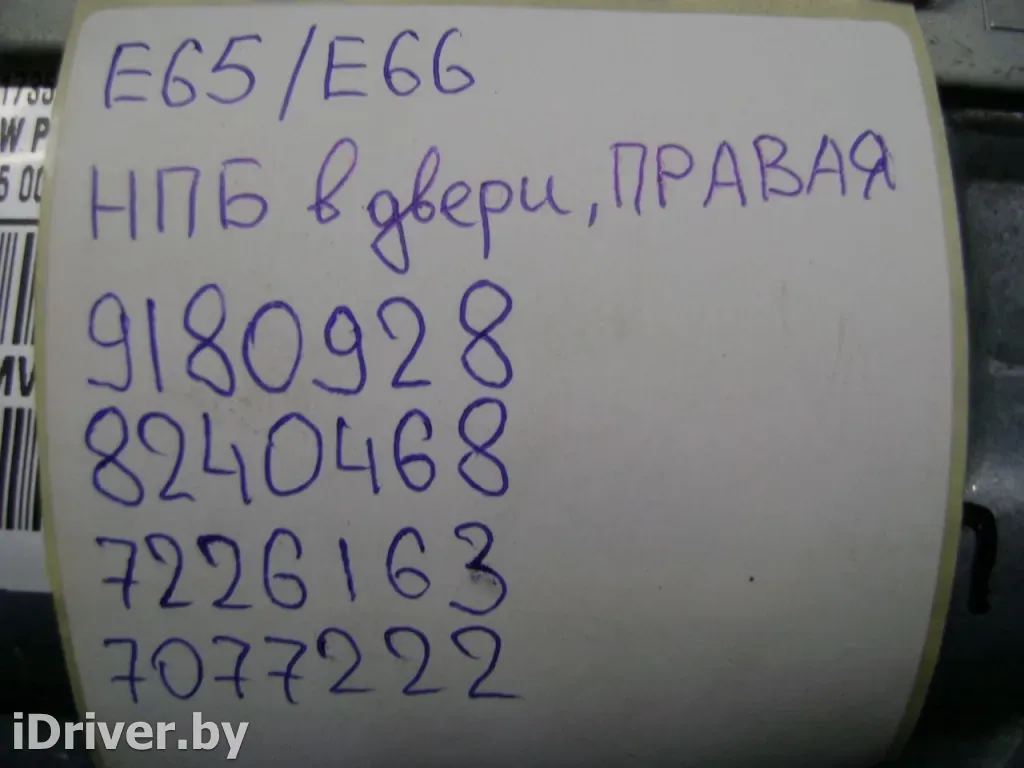 E65/E66
НПБ в двери, ПРАВАЯ
9180928
8240468
7226163
7077222
1735
W P
5 00
iDriver.by